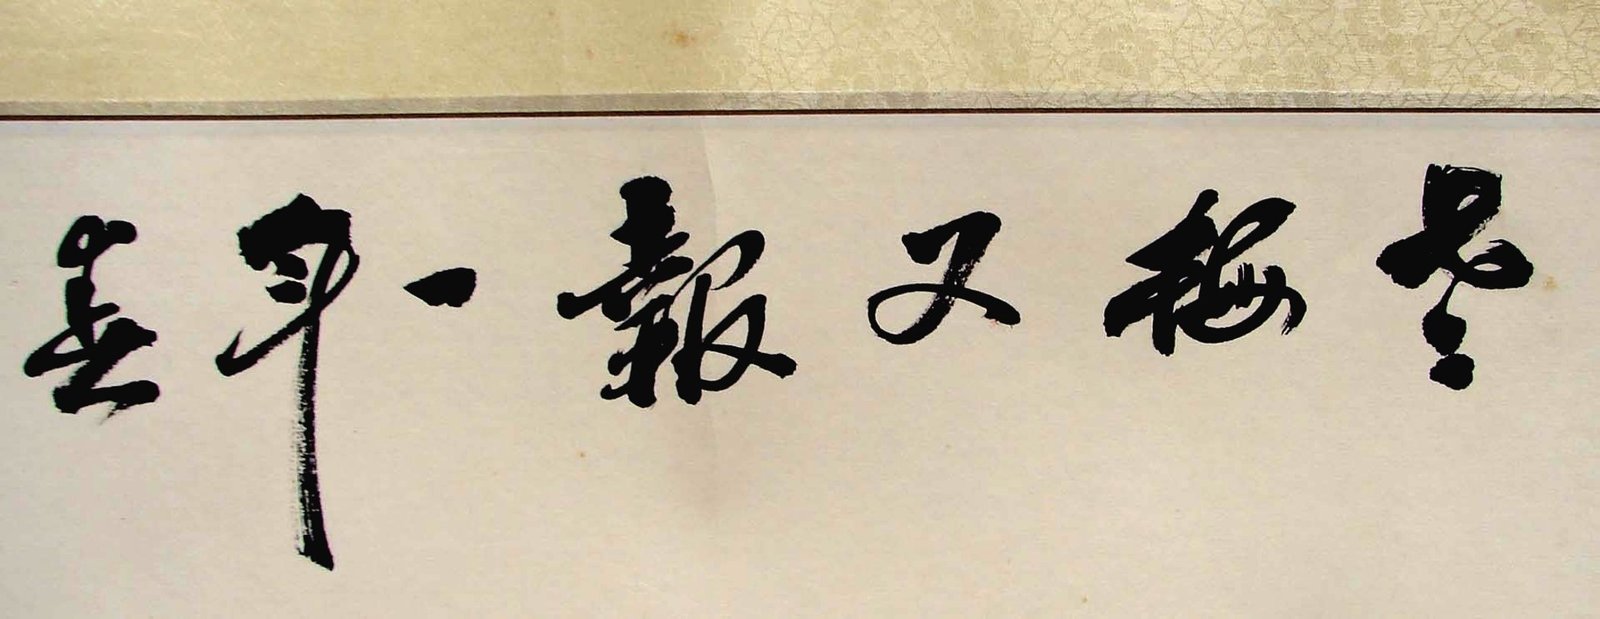 寒梅又報一年春